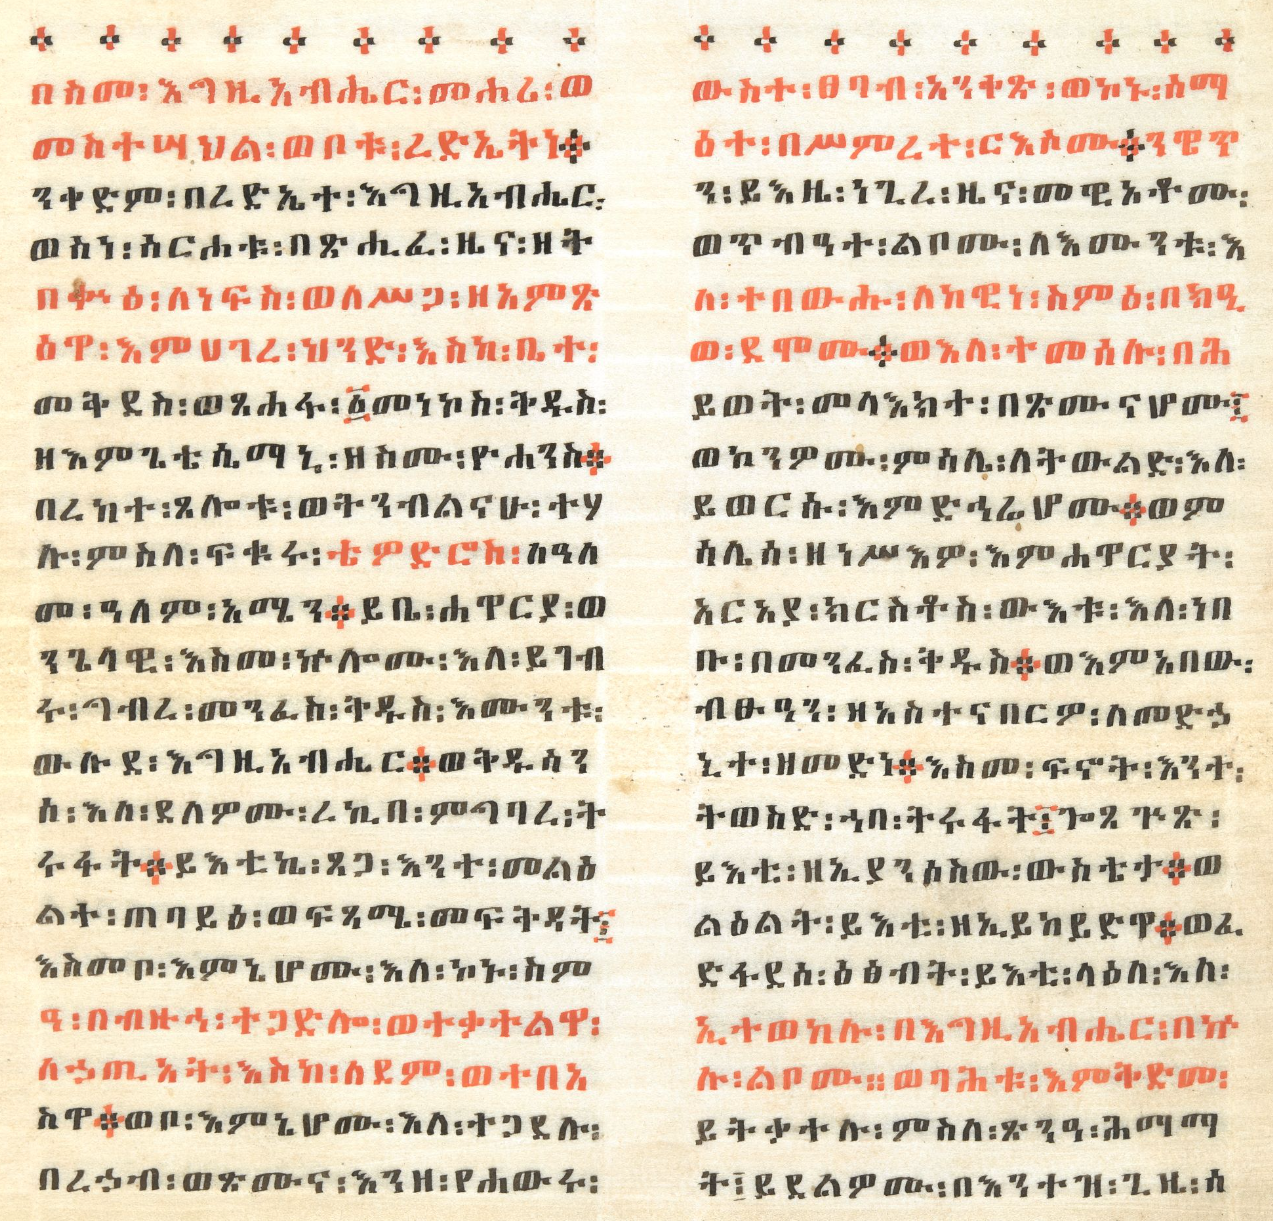 በስመ፡ እግዚአብሔር፡ መሐሪ፡ ወ
መስተሣህል፡ ወቦቱ፡ ረድኤትነ።
ንቀድም፡ በረድኤተ፡ እግዚአብሔር፡
ወስነ፡ ስርሐቱ፡ በጽሒፈ፡ ዜና፡ ዘት
በቍዕ፡ ለነፍስ፡ ወለሥጋ፡ ዘአምጽ
ዕዋ፡ እምሀገረ፡ ህንድ፡ እስከ፡ ቤተ፡
መቅደስ፡ ወጸሐፋ፡ ፩መነኮስ፡ ቅዱስ፡
ዘእምጌቴሴማኒ፡ ዘስሙ፡ ዮሐንስ።
በረከተ፡ ጸሎቱ፡ ወትንብልናሁ፡ ተሃ
ሉ፡ ምስለ፡ ፍቁሩ፡ ቴዎድሮስ፡ ለዓለ
መ፡ ዓለም፡ አሜን። ይቤ፡ ሐዋርያ፡ ወ
ንጌላዊ፡ እስመ፡ ኵሎሙ፡ እለ፡ ይገብ
ሩ፡ ግብረ፡ መንፈስ፡ ቅዱስ፡ እሙንቱ፡
ውሉደ፡ እግዚአብሔር። ወቅዱሳን
ሰ፡ እለ፡ ደለዎሙ፡ ረኪበ፡ ምግባረ፡ ት
ሩፋት። ይእቲኬ፡ ጸጋ፡ እንተ፡ መልዕ
ልተ፡ ጠባይዕ፡ ወፍጻሜ፡ መፍትዳት፤
እስመቦ፡ እምኔሆሙ፡ እለ፡ ኮኑ፡ ስም
ዓ፡ በብዙኅ፡ ተጋድሎ፡ ወተቃተልዋ፡
ለኃጢአት፡ እስከ፡ ለደም፡ ወተበአ
ስዋ። ወቦ፡ እምኔሆሙ፡ እለ፡ ተጋደሉ፡
በረኃብ፡ ወጽሙና፡ እንዘ፡ የሐውሩ፡
ውስተ፡ ፀባብ፡ አንቀጽ፡ ወኮኑ፡ ሰማ
ዕተ፡ በሥምረተ፡ ርእሶሙ። ንዌጥ
ን፡ ይእዜ፡ ነጊረ፡ ዜና፡ መዊአቶሙ፡
ወጥብዓተ፡ ልቦሙ፡ ለእሙንቱ፡ እ
ለ፡ ተበውሑ፡ ለከዊነ፡ ስምዕ፡ በክዒ
ወ፡ ደሞሙ። ወእለ፡ ተመሰሉ፡ በሕ
ይወት፡ መላእክተ፡ በጽሙናሆሙ፤
ወኮንዎሙ፡ ምሳሌ፡ ለትውልድ፡ እለ፡
ይወርሱ፡ እምድኅሬሆሙ። ወም
ሳሌሰ፡ ዘነሥእዎ፡ እምሐዋርያት፡
አርአያ፡ ክርስቶስ፡ ውእቱ፡ እለ፡ ነበ
ቡ፡ በመንፈስ፡ ቅዱስ። ወእምአበው፡
ብፁዓን፡ ዘአስተናበርዎ፡ ለመድኃ
ኒተ፡ ዘመድነ። እስመ፡ ፍኖት፡ እንተ፡
ትወስድ፡ ኀበ፡ ትሩፋት፤ ጐጸጕጽ፡
ይእቲ፡ ዘኢያንሶስው፡ ውስቴታ። ወ
ልዕልት፡ ይእቲ፡ ዘኢይከይድዋ። ወፈ
ድፋደሰ፡ ዕፅብት፡ ይእቲ፡ ላዕለ፡ እለ፡
ኢተወከሉ፡ በእግዚአብሔር፡ በኵ
ሉ፡ ልቦሙ። ወባሕቱ፡ እምቅድመ፡
ይትቃተሉ፡ ምስለ፡ ጽንዓ፡ ሕማማ
ት፤ ይደልዎሙ፡ በእንተዝ፡ ጊዜ፡ ሰ